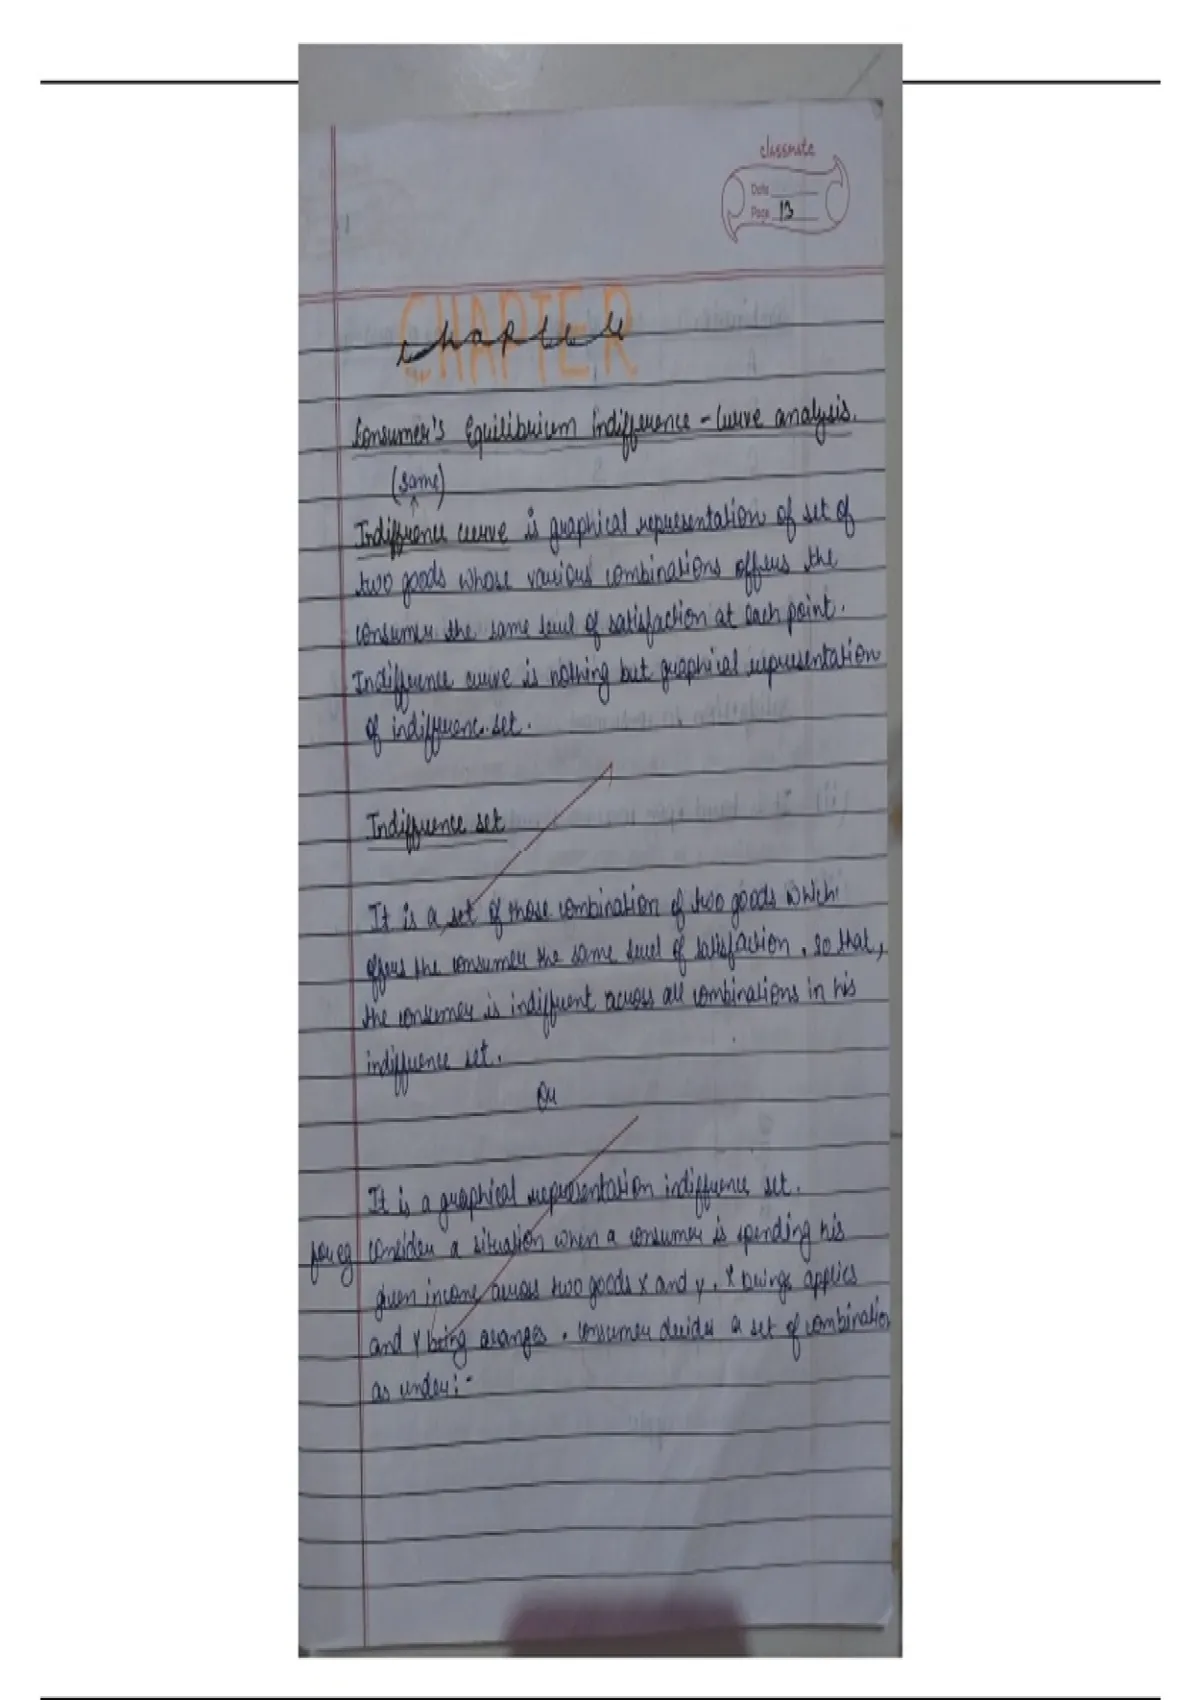 classmate
Date
Page 13
CHAPTER
chapter
Consumer's Equilibrium Indifference - Curve analysis.
(same)
Indifference curve is graphical representation of set of
two goods whose various combinations offers the
consumer the same level of satisfaction at each point.
Indifference curve is nothing but graphical representation
of indifferenc set.
Indifference set
It is a set of those combination of two goods which
offers the consumer the same level of satisfaction, so that,
the consumer is indifferent across all combinations in his
indifference set.
Or
It is a graphical representation indifference set.
for eg consider a situation when a consumer is spending his
given income across two goods X and y. X beings apples
and Y being oranges. Consumer decides a set of combination
as under:-